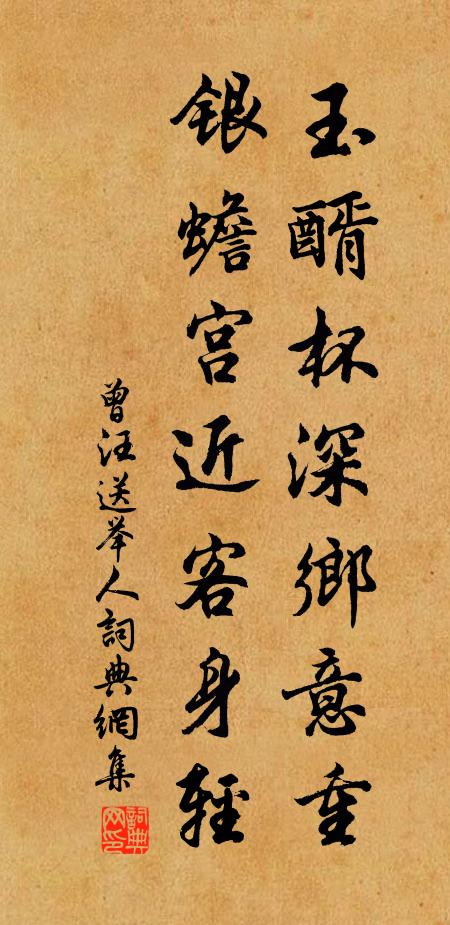 玉醑杯深鄉意重
銀蟾宮近客身輕
曾汪送举人詞典網集
詞典网印